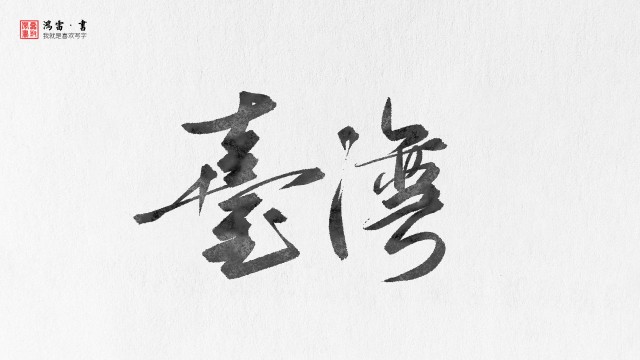 鴻雷·書
我就是喜欢写字
臺灣